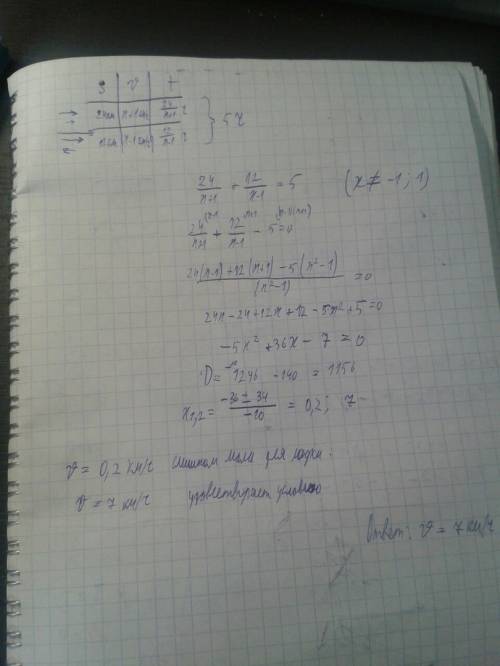 S | V | t
24км | x+1км/ч | 24/(x+1) ч
12км | x-1км/ч | 12/(x-1) ч } 5ч
24/(x+1) + 12/(x-1) = 5 (x ≠ -1; 1)
24/(x+1) + 12/(x-1) - 5 = 0
(24(x-1) + 12(x+1) - 5(x²-1))/(x²-1) = 0
24x - 24 + 12x + 12 - 5x² + 5 = 0
-5x² + 36x - 7 = 0
D = 1246 - 140 = 1156
x1,2 = (-36 ± 34)/(-10) = 0,2; 7
v = 0,2 км/ч слишком мала для лодки.
v = 7 км/ч удовлетворяет условию
Ответ: v = 7 км/ч